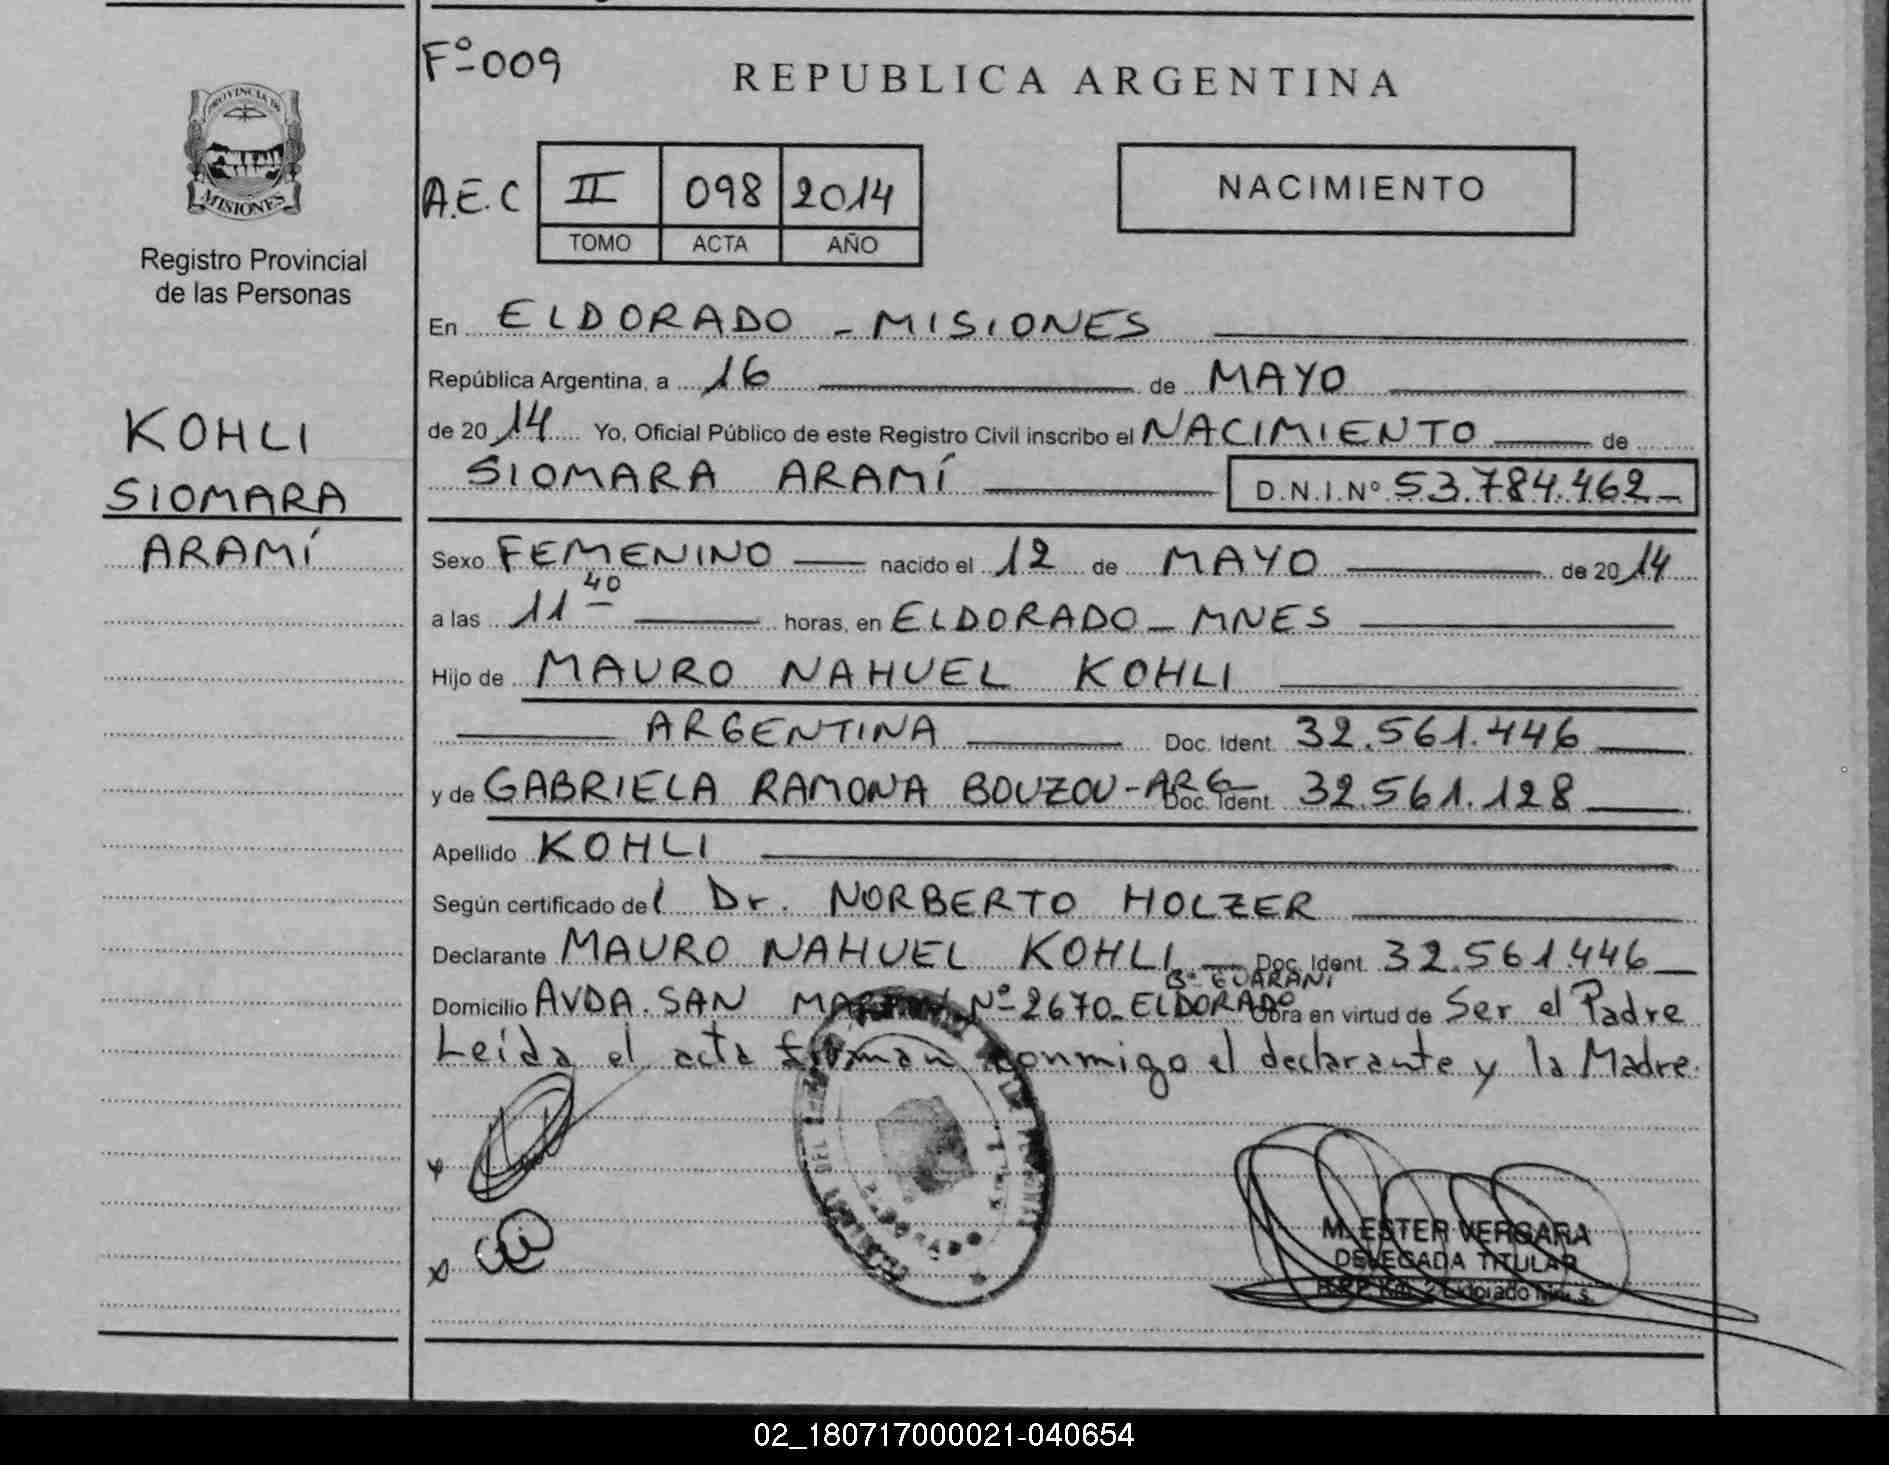 Fº-009
REPUBLICA ARGENTINA
PROVINCIA DE
MISIONES
Registro Provincial
de las Personas
KOHLI
SIOMARA
ARAMÍ
A.E.C II 098 2014
TOMO ACTA AÑO
NACIMIENTO
En ELDORADO - MISIONES
República Argentina, a 16 de MAYO
de 2014 Yo, Oficial Público de este Registro Civil inscribo el NACIMIENTO de
SIOMARA ARAMÍ D.N.I.Nº 53.784.462
Sexo FEMENINO nacido el 12 de MAYO de 2014
a las 11 40 horas, en ELDORADO - MNES
Hijo de MAURO NAHUEL KOHLI
ARGENTINA Doc. Ident. 32.561.446
y de GABRIELA RAMONA BOUZOU - ARG Doc. Ident. 32.561.128
Apellido KOHLI
Según certificado del Dr. NORBERTO HOLZER
Declarante MAURO NAHUEL KOHLI Doc. Ident. 32.561.446
Bº GUARANI
Domicilio AVDA. SAN MARTIN Nº 2670 - ELDORADO Obra en virtud de Ser el Padre
Leída el acta firman conmigo el declarante y la Madre.
M. ESTER VERGARA
DELEGADA TITULAR
R.P.P. Km. 2 Eldorado Mnes.
02_180717000021-040654